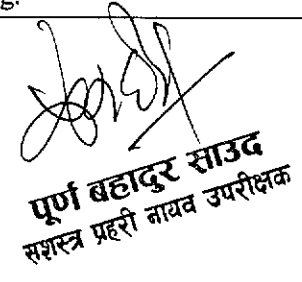 g.
पूर्ण बहादुर साउद
सशस्त्र प्रहरी नायव उपरीक्षक